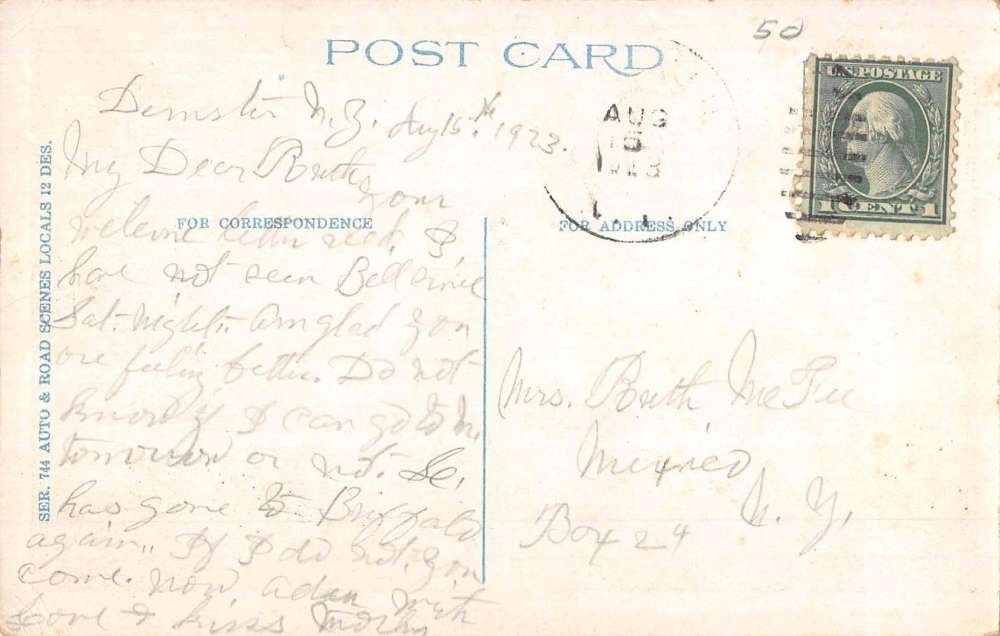 50
POST CARD
Demster N.Y. Aug 15th 1923.
AUG
1923
U.S. POSTAGE
1 CENTS 1
My Dear Ruth your
FOR CORRESPONDENCE
welcome letter recd. I
have not seen Bell since
Sat. Night. Am glad you
are feeling better. Do not
know if I can go to M.
tomorrow or not.
has gone to Buffalo
again. If I do not. you
come. now with
love & kiss Mother
FOR ADDRESS ONLY
Mrs. Ruth McFee
Mexico
N. Y.
Box 24
SER. 744 AUTO & ROAD SCENES LOCALS 12 DES.